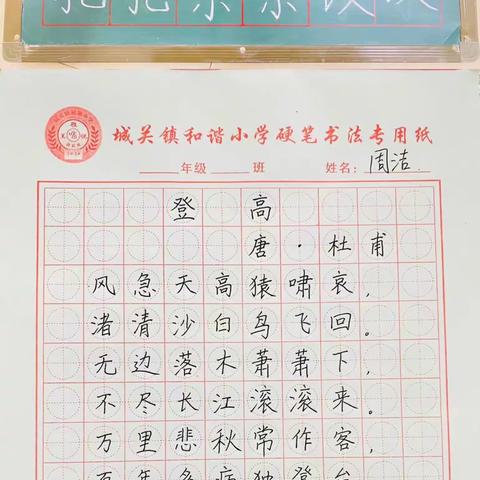 城关镇和谐小学硬笔书法专用纸
年级 班 姓名：周洁
登 高
唐·杜甫
风急天高猿啸哀，
渚清沙白鸟飞回。
无边落木萧萧下，
不尽长江滚滚来。
万里悲秋常作客，
百年多病独登台